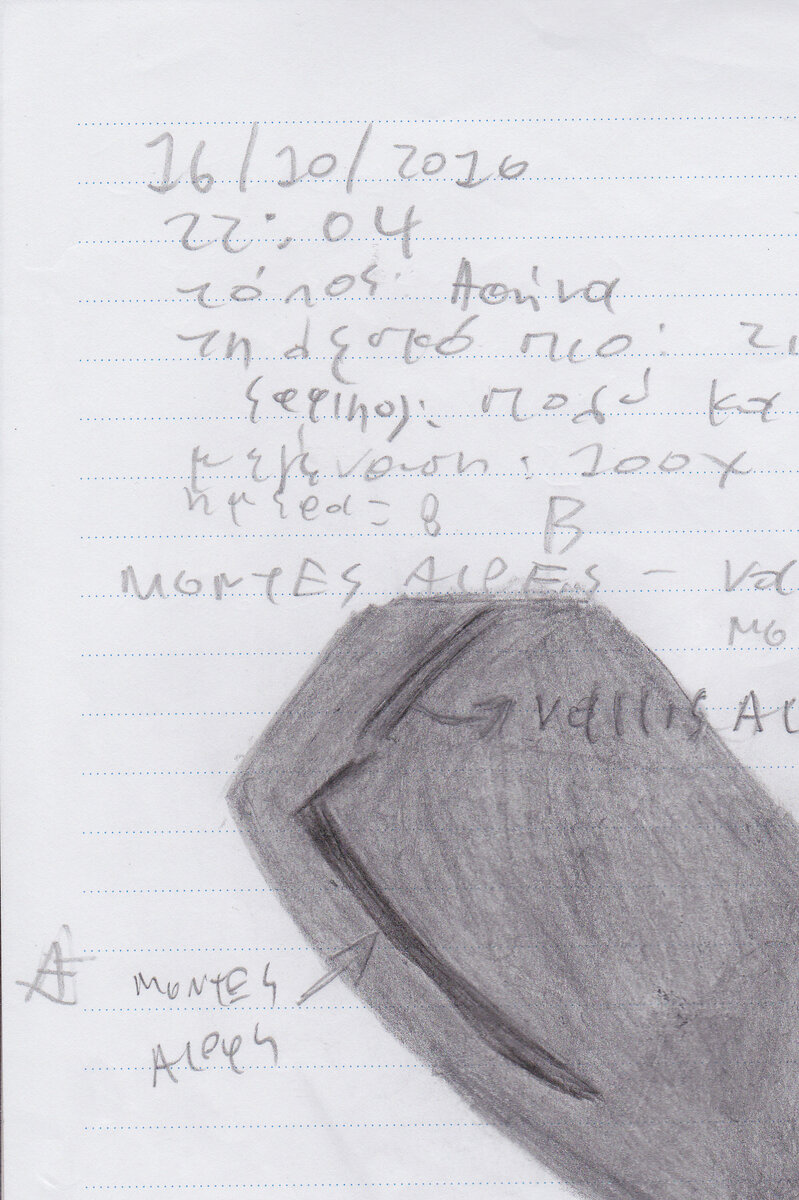 16/10/2016
22:04
τόπος: Αθήνα
τηλεσκόπιο:
μεγένθυση: 100x
ημέρα = 8 B
MONTES ALPES -
VALLIS AL
A MONTES
ALPES